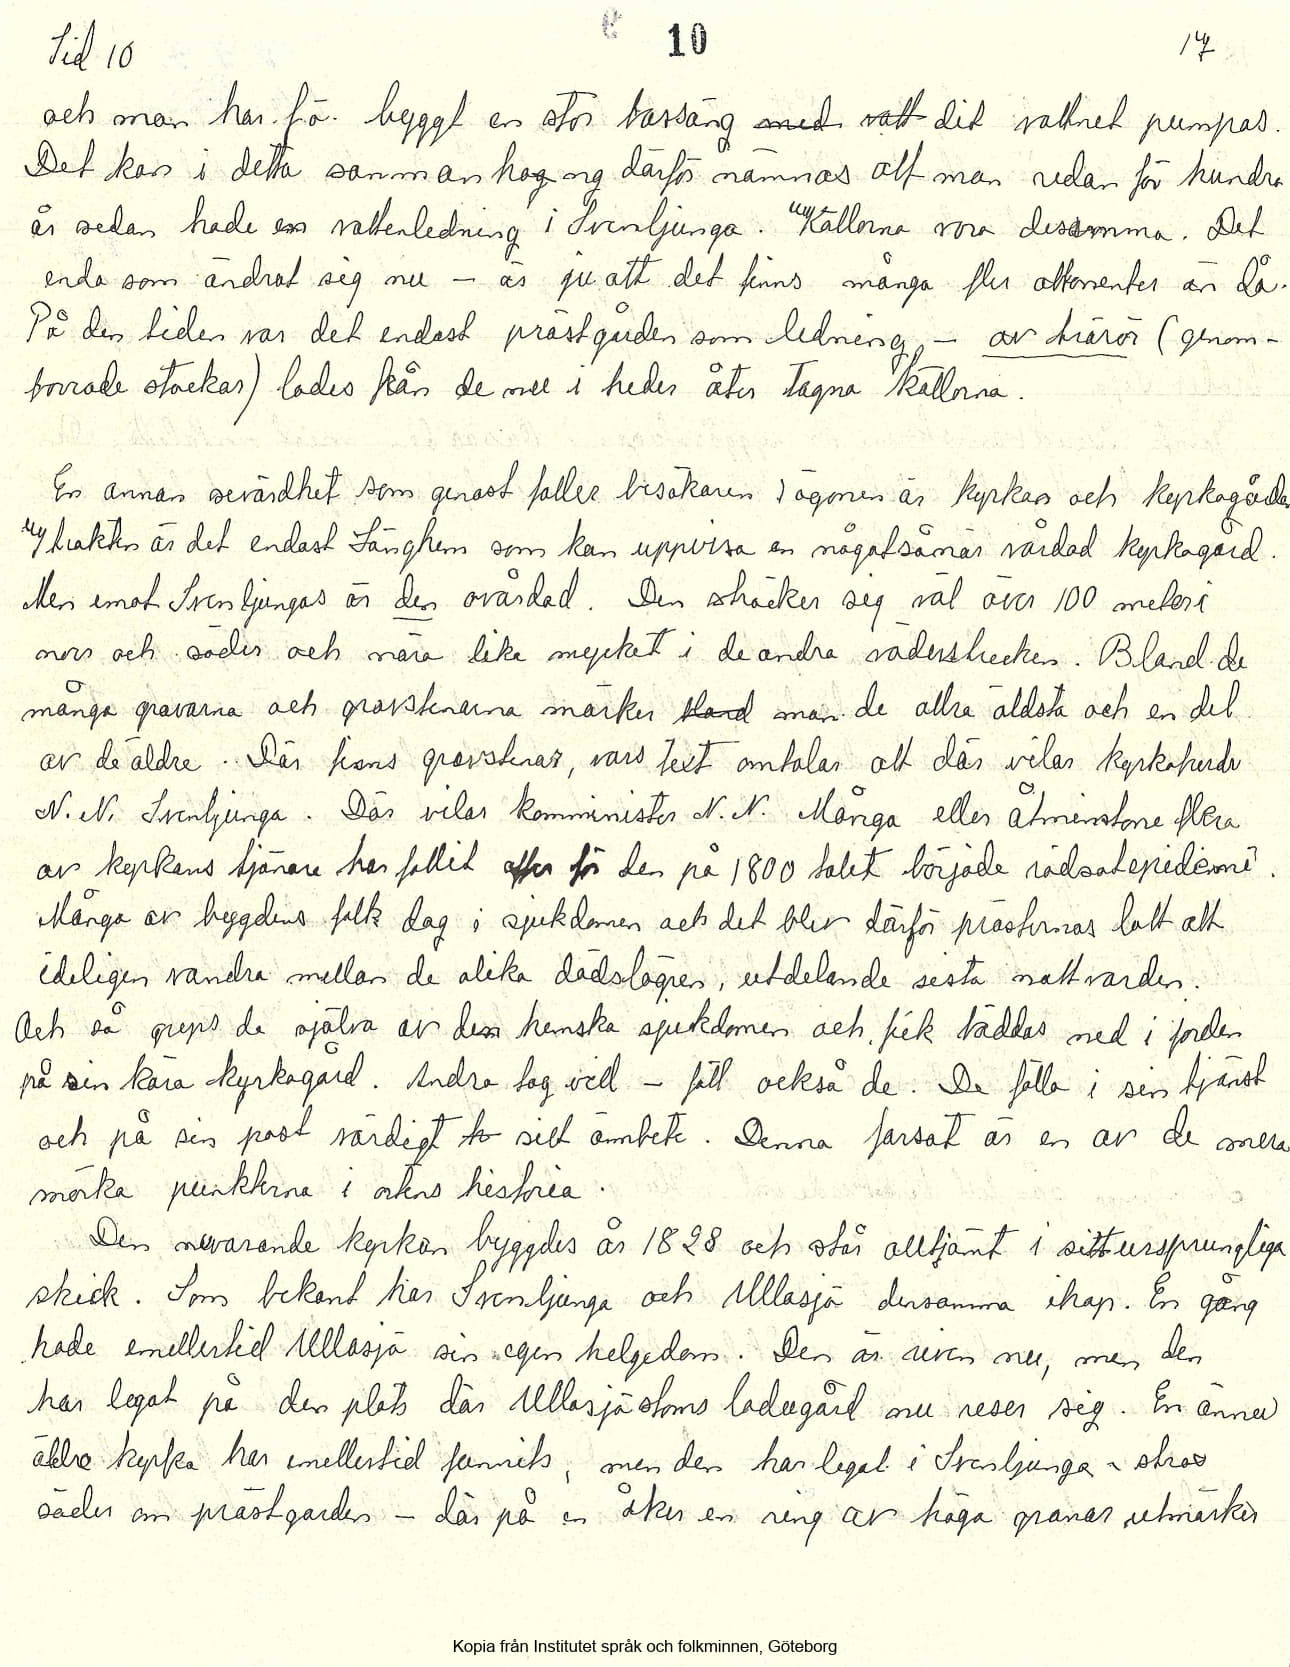 Sid 10
10
17
och man har f.ö. byggt en stor bassäng med vatt dit vattnet pumpas.
Det kan i detta sammanhag ng därför nämnas att man redan för hundra
år sedan hade en vattenledning i Svenljunga. Källorna vora desamma. Det
enda som ändrat sig nu – är ju att det finns många fler abonenter än då.
På den tiden var det endast prästgården som ledning, – av trärör (genom-
borrade stockar) lades från de nu i heder åter tagna källorna.
En annan sevärdhet som genast faller besökaren i ögonen är kyrkan och kyrkogården
I trakten är det endast Länghem som kan uppvisa en någotsånär vårdad kyrkogård.
Men emot Svenljungas är den ovårdad. Den sträcker sig väl över 100 meter i
norr och söder och nära lika mycket i de andra väderstrecken. Bland de
många gravarna och gravstenarna märker bland man de allra äldsta och en del
av de äldre. Där finns gravstenar, vars text omtalar att där vilar kyrkoherde
N. N. Svenljunga. Där vilar komminister N. N. Många eller åtminstone flera
av kyrkans tjänare har fallit offer för den på 1800 talet började rödsotepidemi.
Många av bygdens folk dog i sjukdomen och det blev därför prästernas lott att
ideligen vandra mellan de olika dödslägren, utdelande sista nattvarden.
Och så greps de själva av den hemska sjukdomen och fick bäddas ned i jorden
på sin kära kyrkogård. Andra tog vid – föll också de. De föllo i sin tjänst
och på sin post värdigt to sitt ämbete. Denna farsot är en av de mera
mörka punkterna i ortens historia.
Den nuvarande kyrkan byggdes år 1828 och står alltjämt i sitt ursprungliga
skick. Som bekant har Svenljunga och Ullasjö densamma ihop. En gång
hade emellertid Ullasjö sin egen helgedom. Den är riven nu, men den
har legat på den plats där Ullasjö stoms ladugård nu reser sig. En ännu
äldre kyrka har emellertid funnits, men den har legat i Svenljunga – strax
söder om prästgården – där på en åker en ring av höga granar utmärker
Kopia från Institutet språk och folkminnen, Göteborg